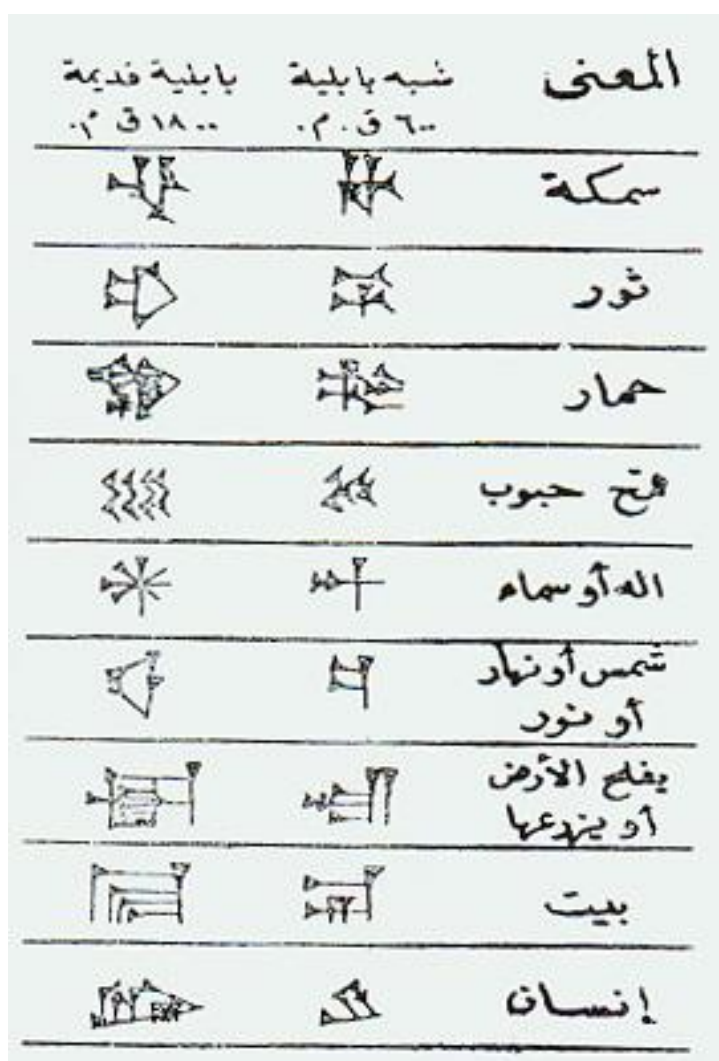 المعنى شبه بابلية بابلية قديمة
٦٠٠ ق.م. ١٨٠٠ ق م.
سمكة
ثور
حمار
قمح حبوب
اله أو سماء
شمس أو نهار
أو نور
يفلح الأرض
أو يزرعها
بيت
إنسان